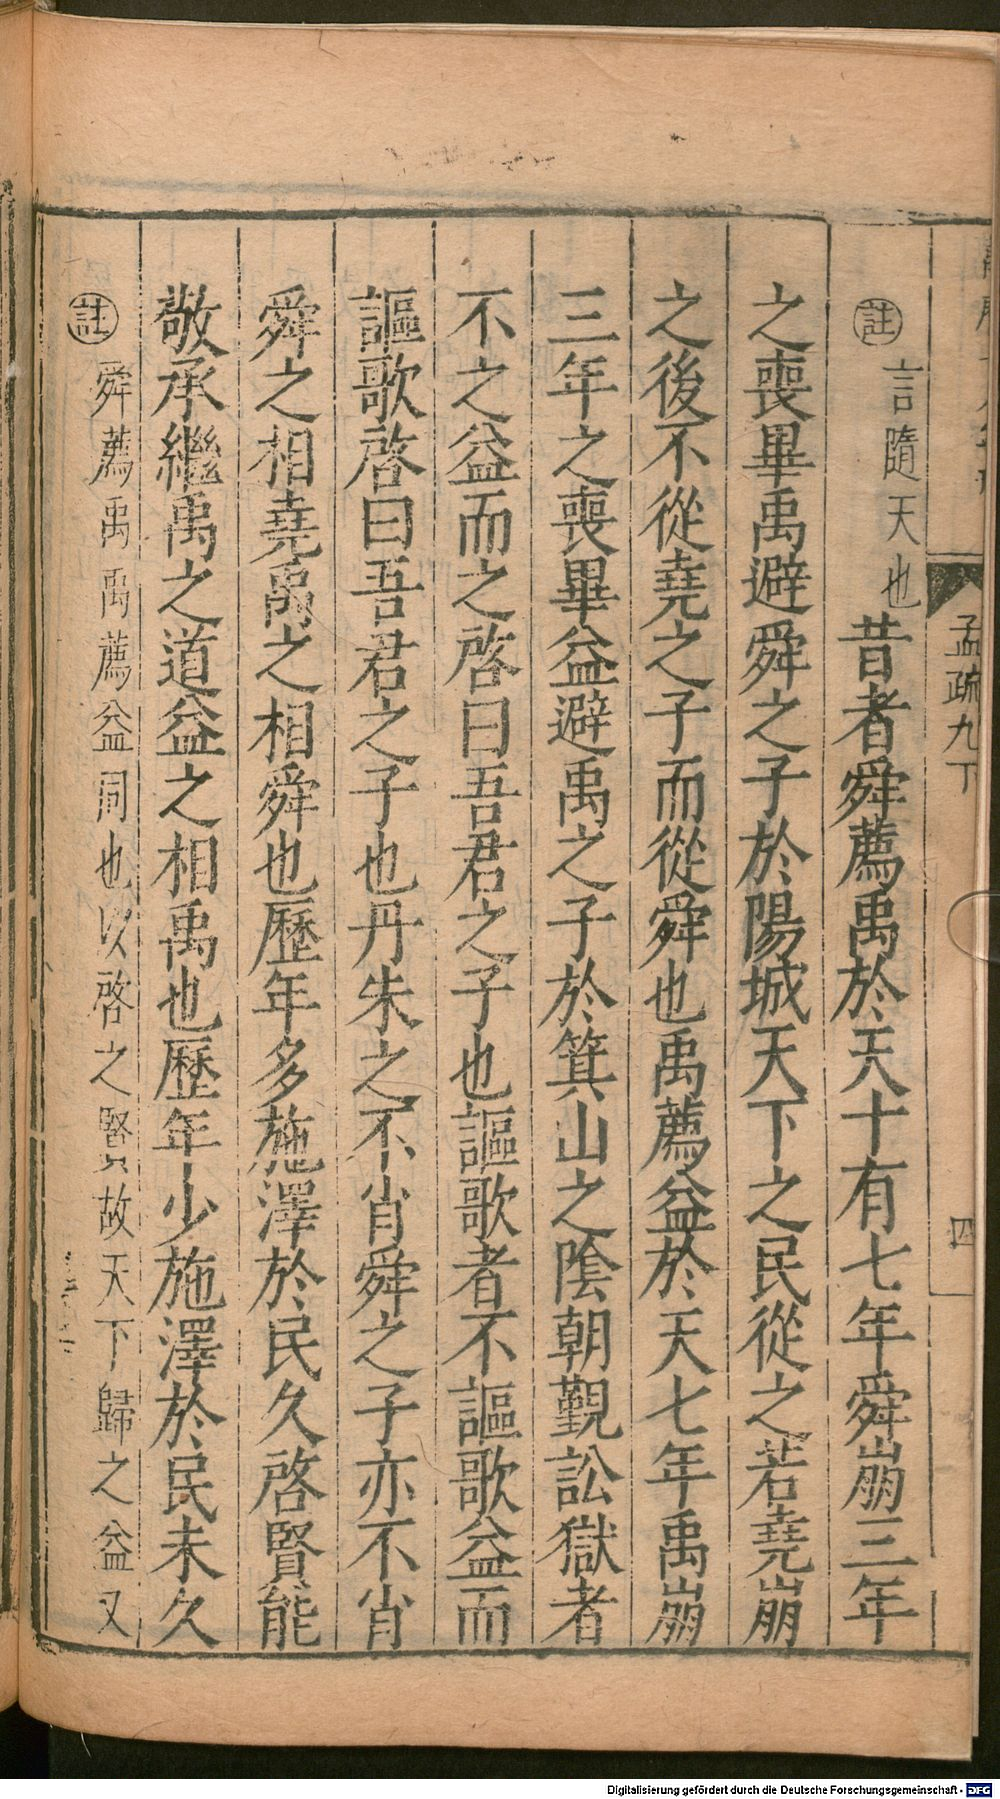 孟疏九下
四
註言隨天也昔者舜薦禹於天十有七年舜崩三年
之喪畢禹避舜之子於陽城天下之民從之若堯崩
之後不從堯之子而從舜也禹薦益於天七年禹崩
三年之喪畢益避禹之子於箕山之陰朝覲訟獄者
不之益而之啓曰吾君之子也謳歌者不謳歌益而
謳歌啓曰吾君之子也丹朱之不肖舜之子亦不肖
舜之相堯禹之相舜也歷年多施澤於民久啓賢能
敬承繼禹之道益之相禹也歷年少施澤於民未久
註舜薦禹禹薦益同也以啓之賢故天下歸之益又
Digitalisierung gefördert durch die Deutsche Forschungsgemeinschaft - DFG